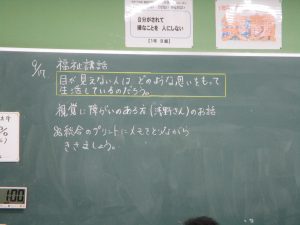 自分がされて
嫌なことを 人にしない
【1年 B組】
9/17 福祉講話
目が見えない人は どのような思いをもって
生活しているのだろう。
視覚に障がいのある方(浅野さん)のお話
総合のプリントにメモをとりながら
ききましょう。
100